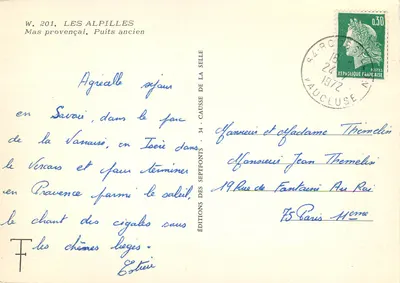 W. 201. LES ALPILLES
Mas provençal, Puits ancien
Agréable séjour
en Savoie, dans le parc
de la Vanoise, en Isère dans
le Vercors et pour terminer
en Provence parmi le soleil,
le chant des cigales sous
les chênes lièges.
ÉDITIONS DES SEPTPONTS - 34 - CAUSSE DE LA SELLE
0,30
REPUBLIQUE FRANÇAISE
24
1972
VAUCLUSE
Monsieur et Madame Themelin
Monsieur Jean Themelin
19 Rue de Fontaine Au Roi
75 Paris 11eme